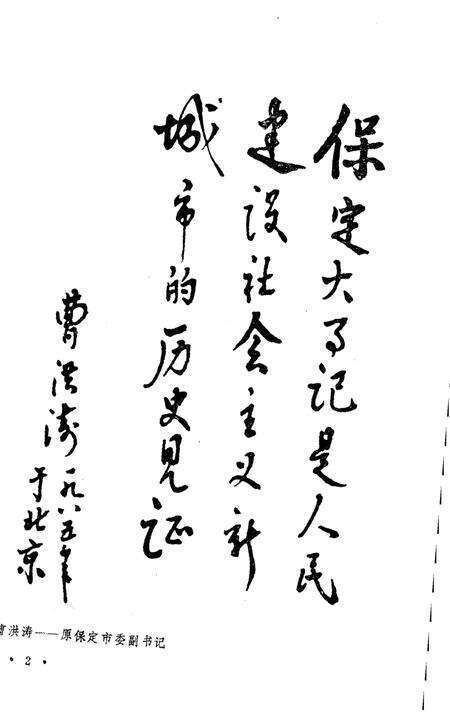 保定大事记是人民
建设社会主义新
城市的历史见证
曹洪涛一九八五年
于北京
曹洪涛——原保定市委副书记
·2·